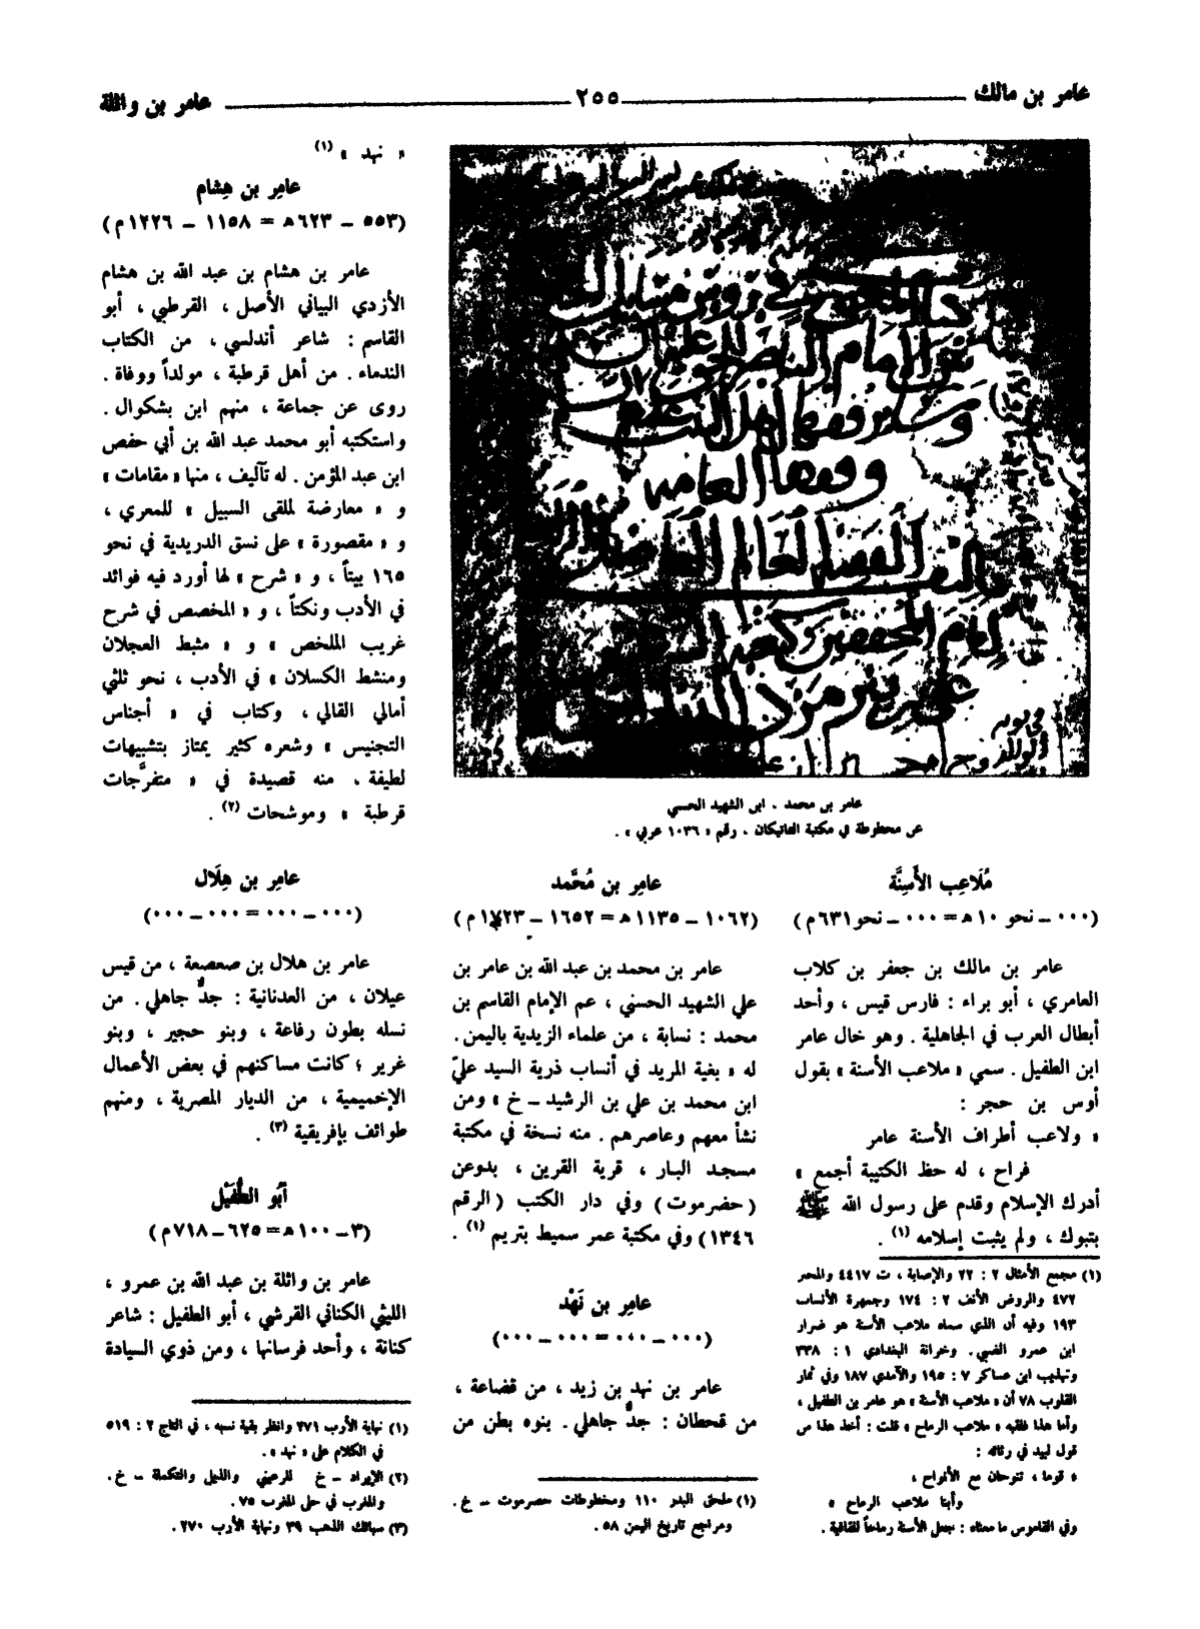 عامر بن مالك ٢٥٥ عامر بن واثلة
عامر بن محمد ، ابن الشهيد الحسني
عن مخطوطة في مكتبة الفاتيكان ، رقم « ١٠٣٦ عربي » .
مُلَاعِب الأَسِنَّة
(٠٠٠ ـ نحو ١٠ هـ = ٠٠٠ ـ نحو ٦٣١ م)
عامر بن مالك بن جعفر بن كلاب
العامري ، أبو براء : فارس قيس ، وأحد
أبطال العرب في الجاهلية . وهو خال عامر
ابن الطفيل . سمي « ملاعب الأسنة » بقول
أوس بن حجر :
« ولاعب أطراف الأسنة عامر
فراح ، له حظ الكتيبة أجمع »
أدرك الإسلام وقدم على رسول الله ﷺ
بتبوك ، ولم يثبت إسلامه (١) .
(١) مجمع الأمثال ٢ : ٢٢ والإصابة ، ت ٤٤١٧ والمحبر
٤٧٢ والروض الأنف ٢ : ١٧٤ وجمهرة الأنساب
١٩٣ وفيه أن الذي سماه ملاعب الأسنة هو ضرار
ابن عمرو الضبي . وخزانة البغدادي ١ : ٣٣٨
وتهذيب ابن عساكر ٧ : ١٩٥ والآمدي ١٨٧ وفي ثمار
القلوب ٧٨ أن « ملاعب الأسنة » هو عامر بن الطفيل ،
وأما هذا فلقبه « ملاعب الرماح » قلت : أخذ هذا من
قول لبيد في رثائه :
« قوما ، تنوحان مع الأنواح ،
وأبنا ملاعب الرماح »
وفي القاموس ما معناه : جعل الأسنة رماحاً للقافية .
عامِر بن مُحَّمد
(١٠٦٢ ـ ١١٣٥ هـ = ١٦٥٢ ـ ١٧٢٣ م)
عامر بن محمد بن عبد الله بن عامر بن
علي الشهيد الحسني ، عم الإمام القاسم بن
محمد : نسابة ، من علماء الزيدية باليمن .
له « بغية المريد في أنساب ذرية السيد عليّ
ابن محمد بن علي بن الرشيد ـ خ » ومن
نشأ معهم وعاصرهم . منه نسخة في مكتبة
مسجد البار ، قرية القرين ، بدوعن
(حضرموت) وفي دار الكتب (الرقم
١٣٤٦) وفي مكتبة عمر سميط بتريم (١) .
عامِر بن نَهْد
(٠٠٠ ـ ٠٠٠ = ٠٠٠ ـ ٠٠٠)
عامر بن نهد بن زيد ، من قضاعة ،
من قحطان : جدٌّ جاهلي . بنوه بطن من
(١) ملحق البدر ١١٠ ومخطوطات حضرموت ـ خ .
ومراجع تاريخ اليمن ٥٨ .
« نهد » (١)
عامِر بن هِشام
(٥٥٣ ـ ٦٢٣ هـ = ١١٥٨ ـ ١٢٢٦ م)
عامر بن هشام بن عبد الله بن هشام
الأزدي البياني الأصل ، القرطبي ، أبو
القاسم : شاعر أندلسي ، من الكتاب
الندماء . من أهل قرطبة ، مولداً ووفاة .
روى عن جماعة ، منهم ابن بشكوال .
واستكتبه أبو محمد عبد الله بن أبي حفص
ابن عبد المؤمن . له تآليف ، منها « مقامات »
و « معارضة لملقى السبيل » للمعري ،
و « مقصورة » على نسق الدريدية في نحو
١٦٥ بيتاً ، و « شرح » لها أورد فيه فوائد
في الأدب ونكتاً ، و « المخصص في شرح
غريب الملخص » و « مثبط العجلان
ومنشط الكسلان » في الأدب ، نحو ثلثي
أمالي القالي ، وكتاب في « أجناس
التجنيس » وشعره كثير يمتاز بتشبيهات
لطيفة . منه قصيدة في « متفرَّجات
قرطبة » وموشحات (٢) .
عامِر بن هِلَال
(٠٠٠ ـ ٠٠٠ = ٠٠٠ ـ ٠٠٠)
عامر بن هلال بن صعصعة ، من قيس
عيلان ، من العدنانية : جدٌّ جاهلي . من
نسله بطون رفاعة ، وبنو حجير ، وبنو
غرير ؛ كانت مساكنهم في بعض الأعمال
الإخميمية ، من الديار المصرية ، ومنهم
طوائف بإفريقية (٣) .
أبُو الطُّفَيْل
(٣ ـ ١٠٠ هـ = ٦٢٥ ـ ٧١٨ م)
عامر بن واثلة بن عبد الله بن عمرو ،
الليثي الكناني القرشي ، أبو الطفيل : شاعر
كنانة ، وأحد فرسانها ، ومن ذوي السيادة
(١) نهاية الأرب ٢٧١ وانظر بقية نسبه ، في التاج ٢ : ٥١٩
في الكلام على « نهد » .
(٢) الإيراد ـ خ للرعيني والذيل والتكملة ـ خ .
والمغرب في حلى المغرب ٧٥ .
(٣) سبائك الذهب ٣٩ ونهاية الأرب ٢٧٠ .